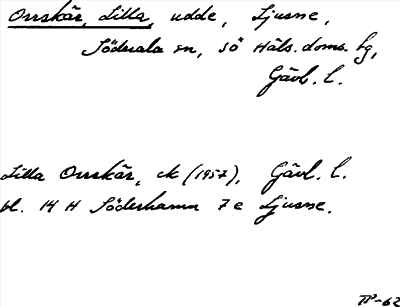 Orrskär, Lilla, udde, Ljusne,
Söderala sn, sö Häls. doms. hg,
Gävl. l.
Lilla Orrskär, ek (1957), Gävl. l.
bl. 14 H Söderhamn 7 e Ljusne.
TP-62